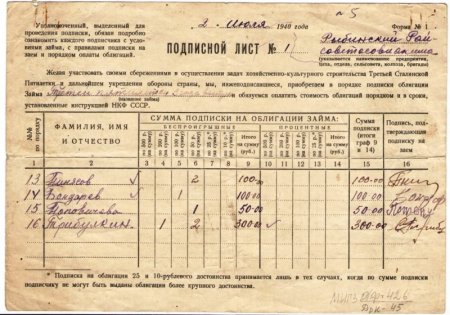 5
Уполномоченный, выделенный для
проведения подписки, обязан подробно
ознакомить каждого подписчика с ус-
ловиями займа, с правилами подписки на
заем и порядком оплаты облигаций.
2 Июля 1940 года
Форма № 1
ПОДПИСНОЙ ЛИСТ № 1
Рыбинский Рай-
(указывается наименование предприятия,
Желая участвовать своими сбережениями в осуществлении задач хозяйственно-культурного строительства Третьей Сталинской
Пятилетки и дальнейшего укрепления обороны страны, мы, нижеподписавшиеся, приобретаем в порядке подписки облигации
Займа Третьей пятилетки и обязуемся оплатить стоимость облигаций порядком и в сроки,
(название займа)
установленные инструкцией НКФ СССР.
№№ по порядку
ФАМИЛИЯ, ИМЯ И ОТЧЕСТВО
СУММА ПОДПИСКИ НА ОБЛИГАЦИИ ЗАЙМА:
БЕСПРОИГРЫШНЫЕ
ПРОЦЕНТНЫЕ
Итого на сумму (руб.)
Сумма подписки (итог граф 9 и 14)
Подпись, подтверждающая подписку на заем
1 2 3 4 5 6 7 8 9 10 11 12 13 14 15 16
13 2 100-00 100-00
14 Бондарев 1 100-00 100-00
15 1 50-00 50-00
16 Трибулкин 1 2 300-00 300-00
* Подписка на облигации 25 и 10-рублевого достоинства принимается лишь в тех случаях, когда по сумме подписки
подписчику не могут быть выданы облигации более крупного достоинства.